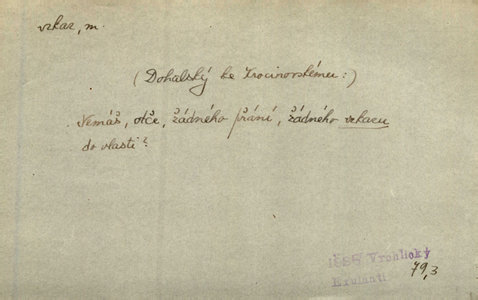 vzkaz, m.
(Dohalský ke Trocnovskému:)
Nemáš, otče, žádného přání, žádného vzkazu
do vlasti?
Vrchlický
Exulanti
79,3